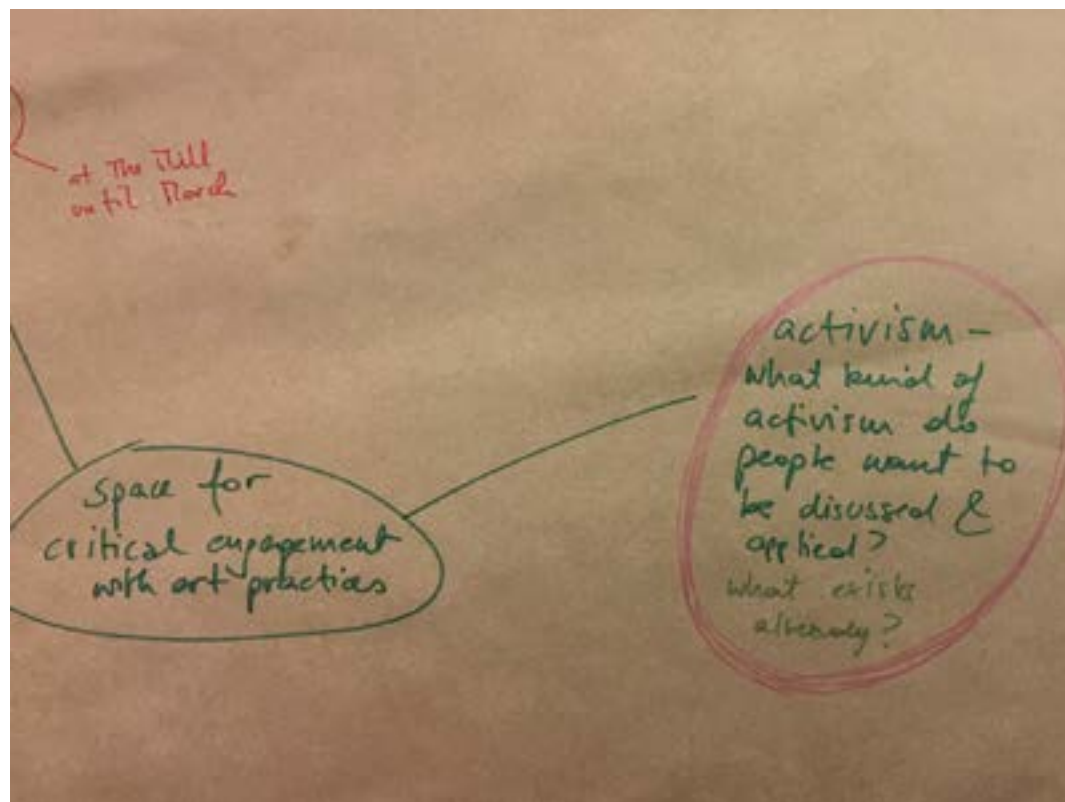 at The Mill
until March
space for
critical engagement
with art practices
activism –
what kind of
activism do
people want to
be discussed &
applied?
what exists
already?